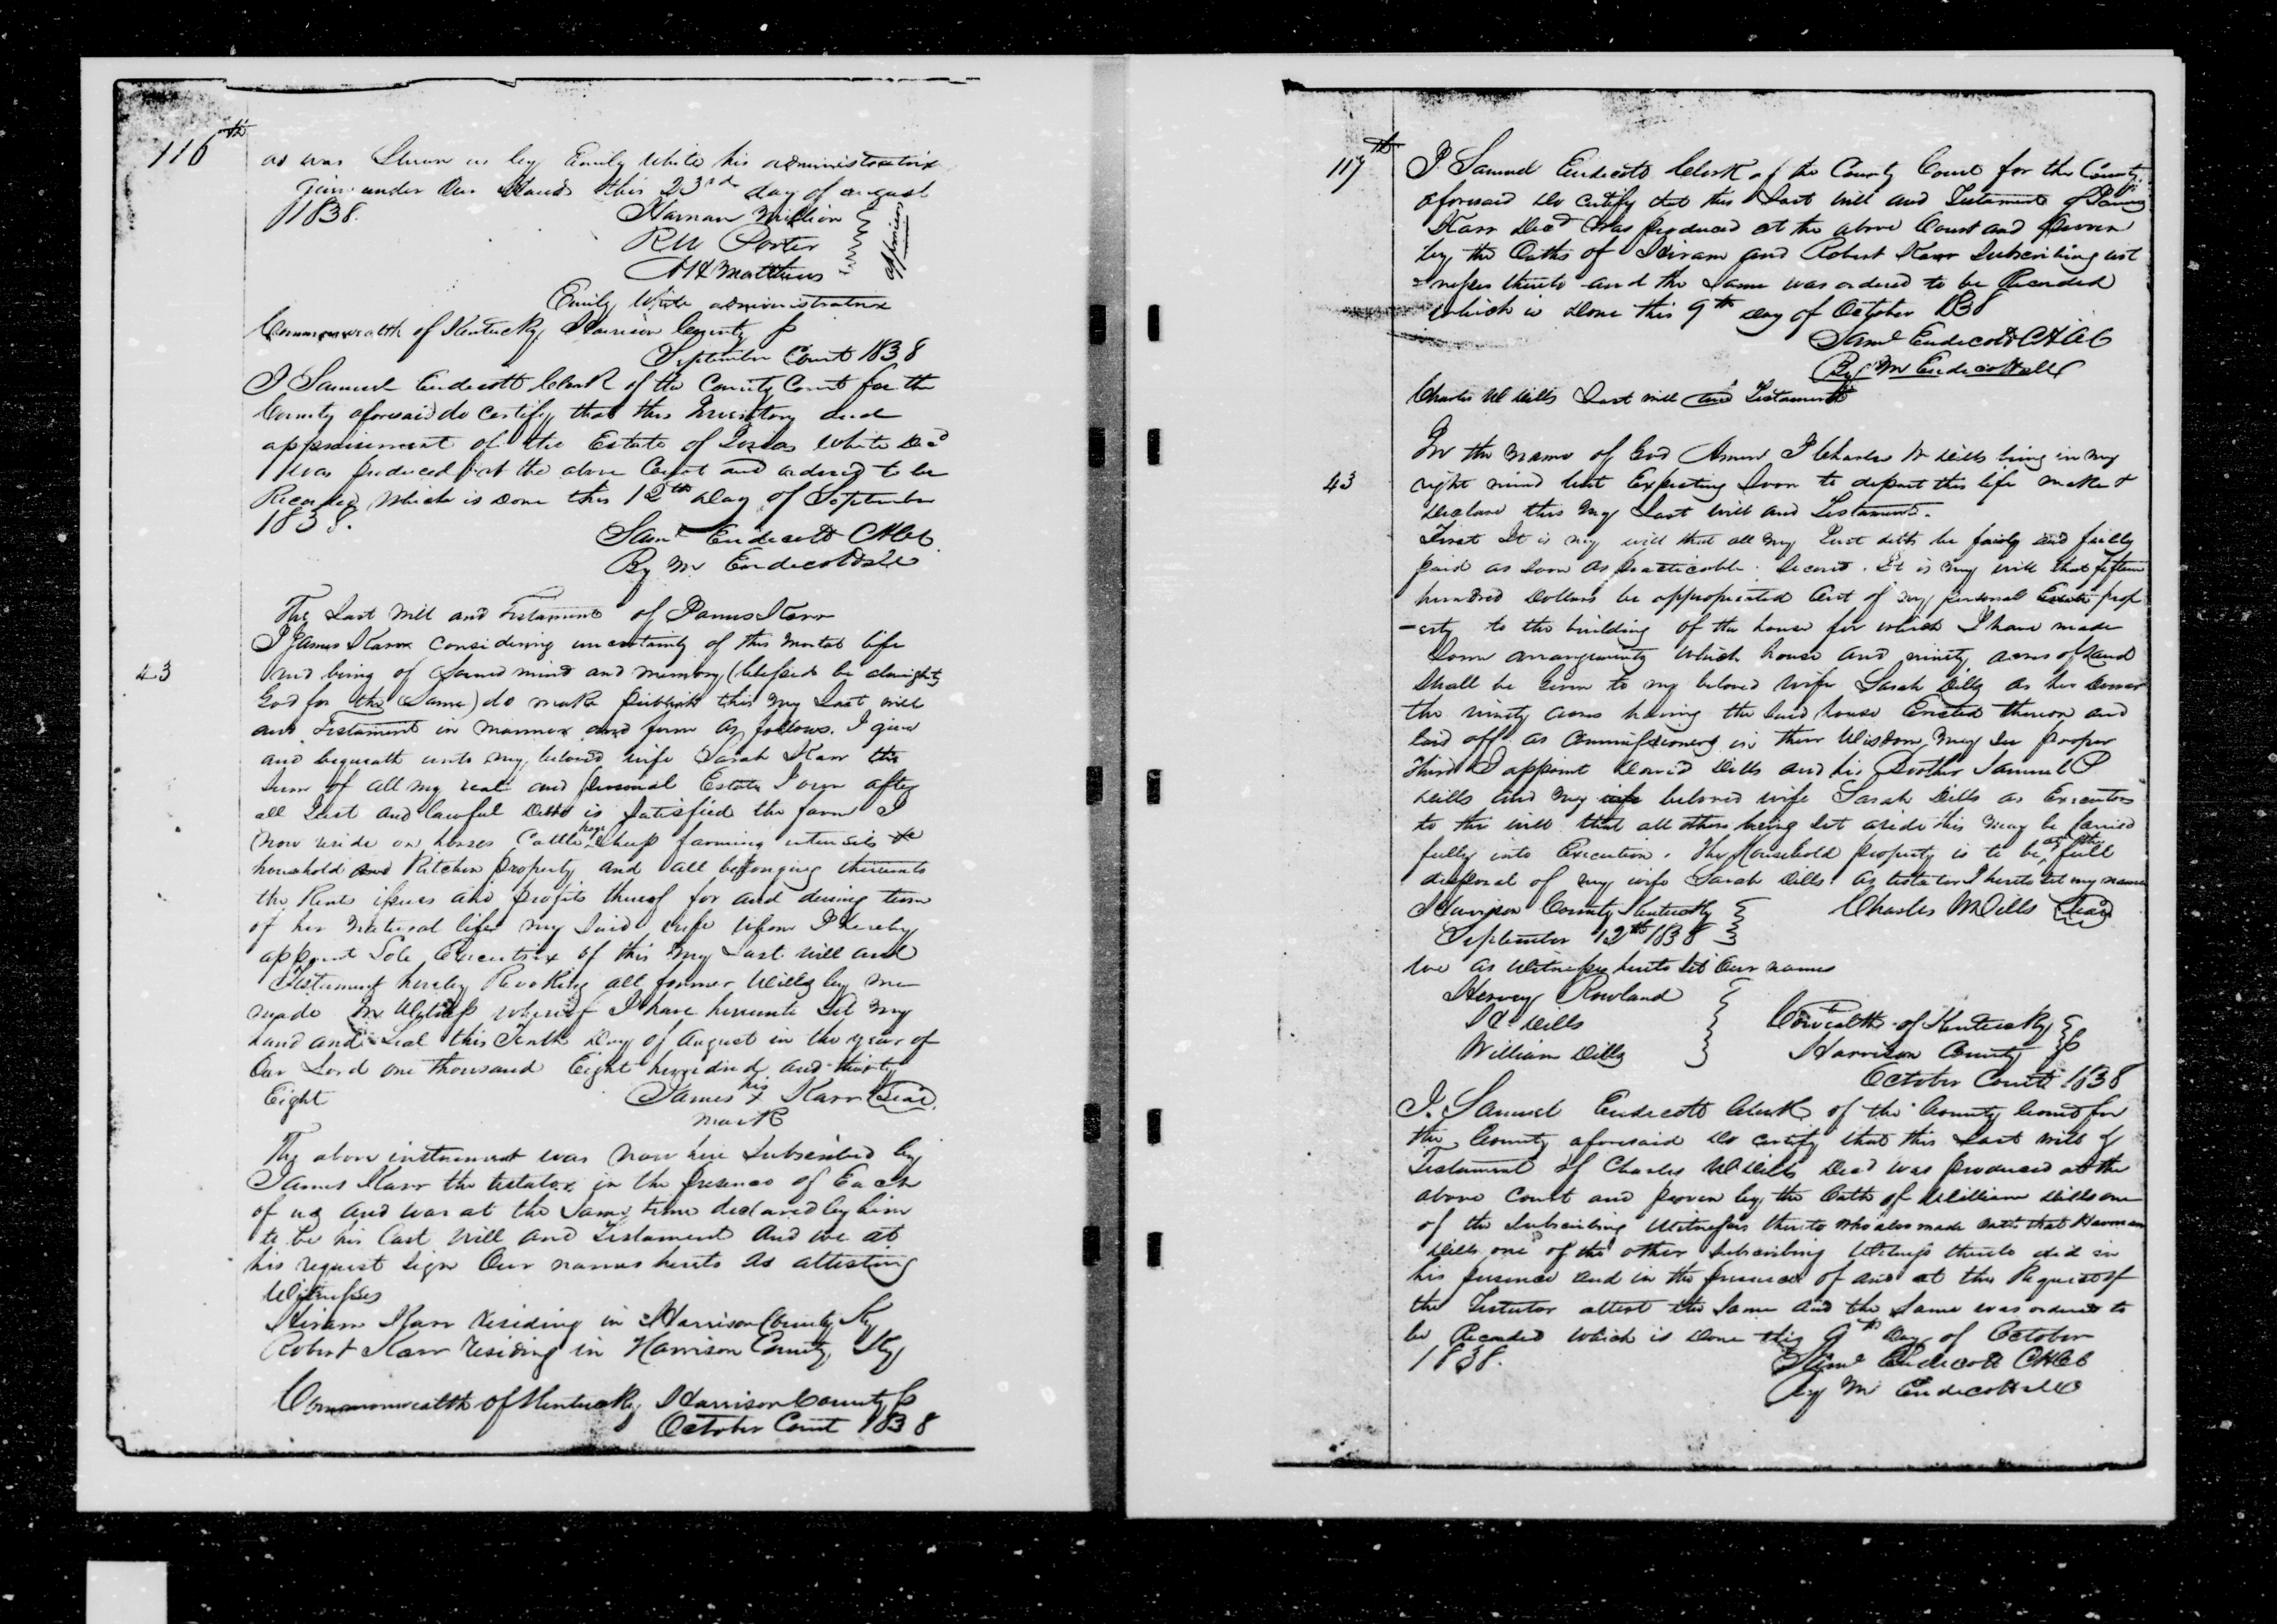 116th
as was Shewn us by Emily White his administratrix
Given under Our Hands this 23rd day of august
1838.
Harman Million
RW Porter
AH Matthews
appraisers
Emily White administratrix
Commonwealth of Kentucky Harrison County S
September Court 1838
I Samuel Endicott Clerk of the County Court for the
County aforesaid do certify that this Inventory and
appraisement of the Estate of Josias White Decd
was produced at the above Court and ordered to be
Recorded Which is Done this 12th Day of September
1838.
Saml Endicott CHCC
By M Endicott DC
The Last Will and Testament of James Karr
I James Karr Considering uncertainty of this mortal life
43
and being of Sound mind and memory, (blessed be almighty
God for the Same) do make publish this my Last will
and Testament in manner and form as follows. I give
and bequeath unto my beloved wife Sarah Karr the
Sum of all my real and personal Estate I own after
all Just and lawful Debts is Satisfied the farm I
now reside on horses Cattle hogs Sheep farming utensils &c
household and Kitchen property and all belonging thereunto
the Rents issues and profits thereof for and during term
of her natural life my Said wife whom I hereby
appoint Sole Executrix of this my Last will and
Testament hereby Revoking all former Wills by me
made In Witness whereof I have hereunto Set my
hand and Seal this Tenth Day of August in the year of
Our Lord one thousand Eight hundred and thirty
Eight
his
James X Karr Seal
mark
The above instrument was now here Subscribed by
James Karr the testator in the presence of Each
of us and was at the Same time declared by him
to be his Last Will and Testament and we at
his request Sign Our names hereto as attesting
Witnesses
Hiram Karr residing in Harrison County, Ky
Robert Karr residing in Harrison County, Ky
Commonwealth of Kentucky Harrison County S
October Court 1838
117th
I Samuel Endicott Clerk of the County Court for the County
aforesaid Do certify that this Last will and Testament of James
Karr Decd Was produced at the above Court and proven
by the Oaths of Hiram and Robert Karr Subscribing wit
-nesses thereto and the Same was ordered to be Recorded
Which is Done this 9th Day of October 1838
Saml Endicott CHCC
By M Endicott DC
Charles W Dills Last will and Testament
In the Name of God Amen I Charles W Dills being in my
43
right mind but Expecting Soon to depart this life make &
Declare this my Last Will and Testament.
First It is my will that all my Just debts be fairly and fully
paid as Soon as practicable. Second. It is my will that fifteen
hundred Dollars be appropriated Out of my personal Estate prop
-erty to the building of the house for which I have made
Some arrangements Which house and ninety acres of Land
Shall be Given to my beloved Wife Sarah Dills as her Dower
the ninety acres having the Said house Erected thereon and
laid off as Commissioners in their Wisdom, may See proper
Third I appoint David Dills and his Brother Samuel P
Dills and my wife beloved wife Sarah Dills as Executors
to this will that all others being Set aside this may be Carried
fully into Execution. The Household property is to be at the full
disposal of my wife Sarah Dills. As testator I hereto Set my name
Harrison County Kentucky
Charles W Dills Seal
September 12th 1838
We as Witnesses hereto Set Our names
Hervey Rowland
H Dills
William Dills
Comwealth of Kentucky
Harrison County S
October Court 1838
I. Samuel Endicott Clerk of the County Court for
the County aforesaid Do certify that this Last will &
Testament of Charles W Dills Decd was produced at the
above Court and proven by the Oath of William Dills one
of the Subscribing Witnesses thereto Who also made oath that Harman
Dills one of the other Subscribing Witness thereto did in
his presence and in the presence of and at the Request of
the Testator attest the Same and the Same was ordered to
be Recorded Which is Done this 9th Day of October
1838.
Saml Endicott CHCC
By M Endicott DC